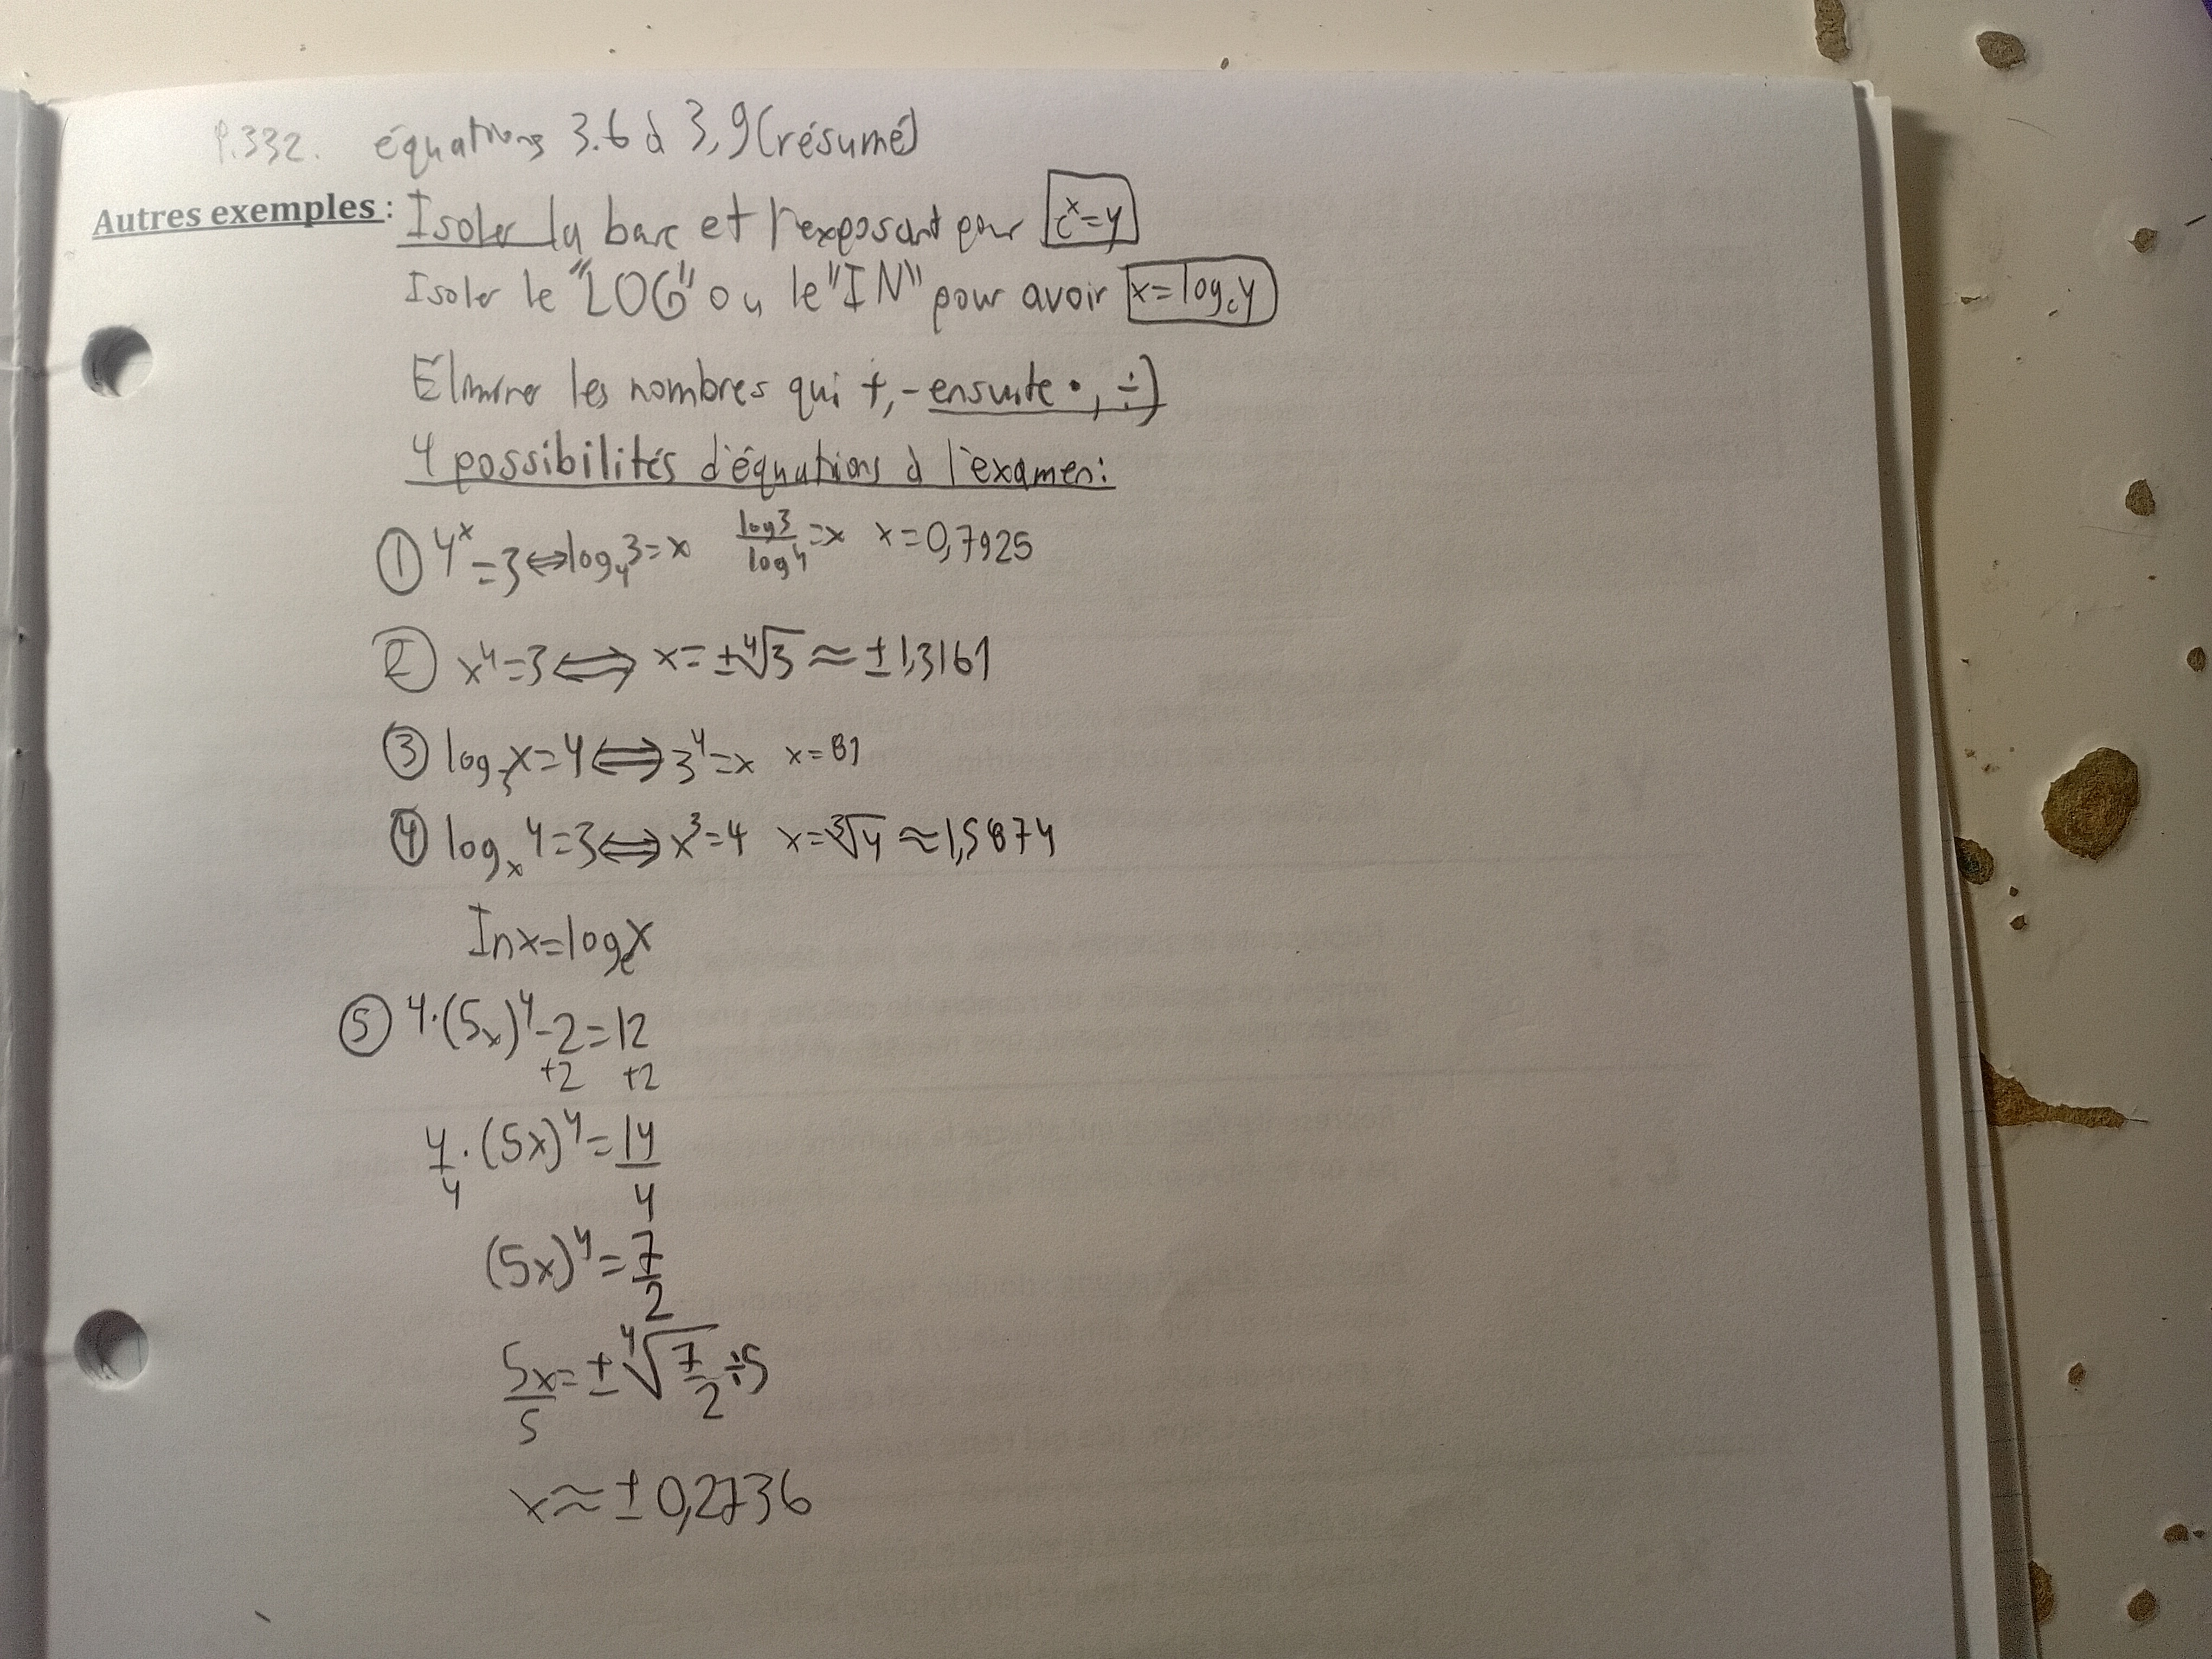 P.332. équations 3.6 à 3,9 (résumé)
Autres exemples : Isoler la base et l'exposant pour c^x=y
Isoler le "LOG" ou le "IN" pour avoir x=log_c y
Éliminer les nombres qui +,- ensuite •, ÷)
4 possibilités d'équations à l'examen:
① 4^x=3⇔log_4 3=x log3/log4=x x=0,7925
② x^4=3⇔x=±∜3≈±1,3161
③ log_3 x=4⇔3^4=x x=81
④ log_x 4=3⇔x^3=4 x=∛4≈1,5874
Inx=log_e x
⑤ 4·(5x)^4-2=12
+2 +2
4/4·(5x)^4=14/4
(5x)^4=7/2
5x/5=±∜(7/2)÷5
x≈±0,2736